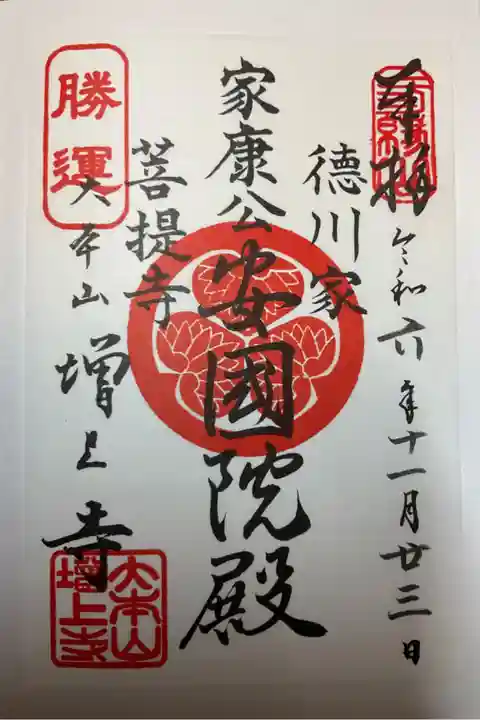 奉拝
令和六年十一月廿三日
德川家
家康公安國院殿
菩提寺
勝運
大本山増上寺
大本山
增上寺